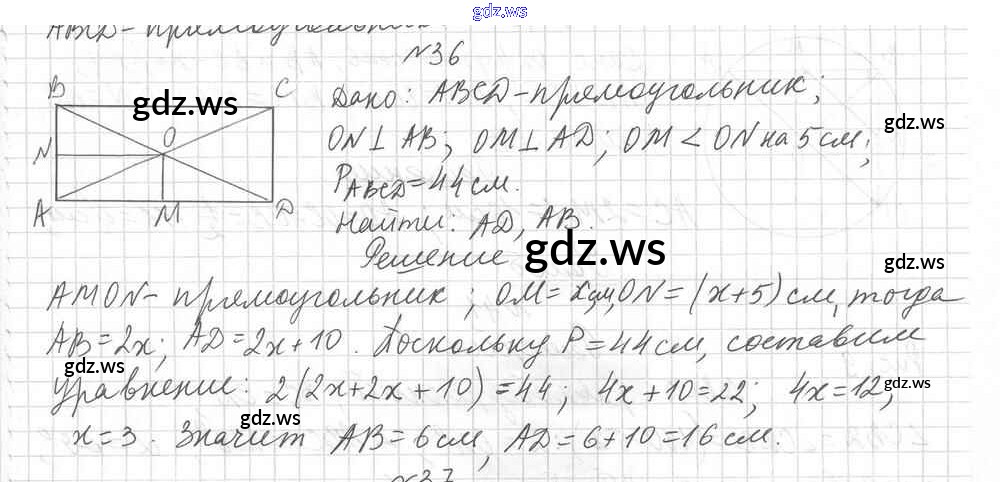 gdz.ws
ABCD - прямоугольник
№36
B
C
gdz.ws
O
N
A
M
D
Дано: ABCD - прямоугольник;
gdz.ws
ON⊥AB; OM⊥AD; OM < ON на 5 см;
P_ABCD = 44 см.
Найти: AD, AB.
gdz.ws
Решение
gdz.ws
AMON - прямоугольник; OM = x см, ON = (x+5) см, тогда
AB = 2x; AD = 2x+10. Поскольку P = 44 см, составим
gdz.ws
уравнение: 2(2x+2x+10) = 44; 4x+10=22; 4x=12,
gdz.ws
gdz.ws
x=3. Значит AB = 6 см, AD = 6+10 = 16 см.
№37